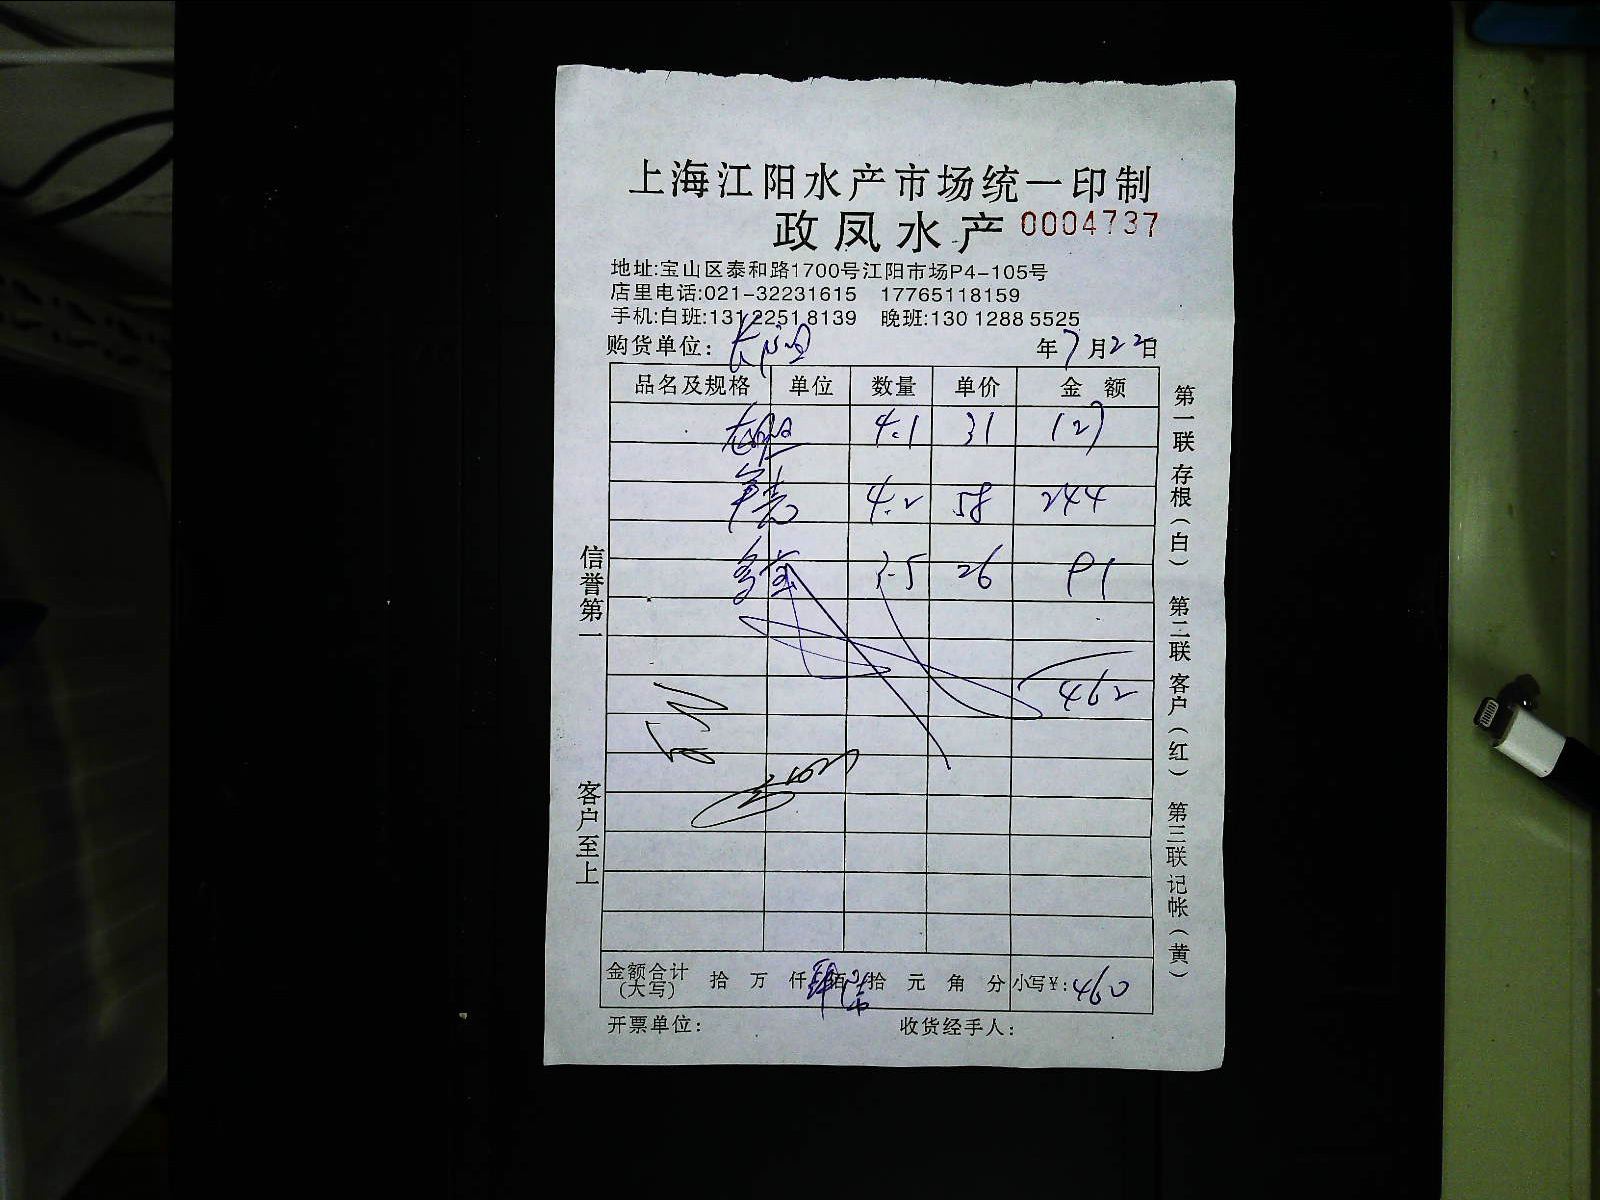 上海江阳水产市场统一印制
政凤水产 0004737
地址:宝山区泰和路1700号江阳市场P4-105号
店里电话:021-32231615 17765118159
手机:白班:131 2251 8139 晚班:130 1288 5525
购货单位: 年7月22日
品名及规格 单位 数量 单价 金额
4.1 31 127
4.2 58 244
3.5 26 91
462
金额合计(大写) 拾 万 仟 佰 拾 元 角 分 小写¥:460
开票单位: 收货经手人:
信誉第一 客户至上
第一联存根(白) 第二联客户(红) 第三联记帐(黄)